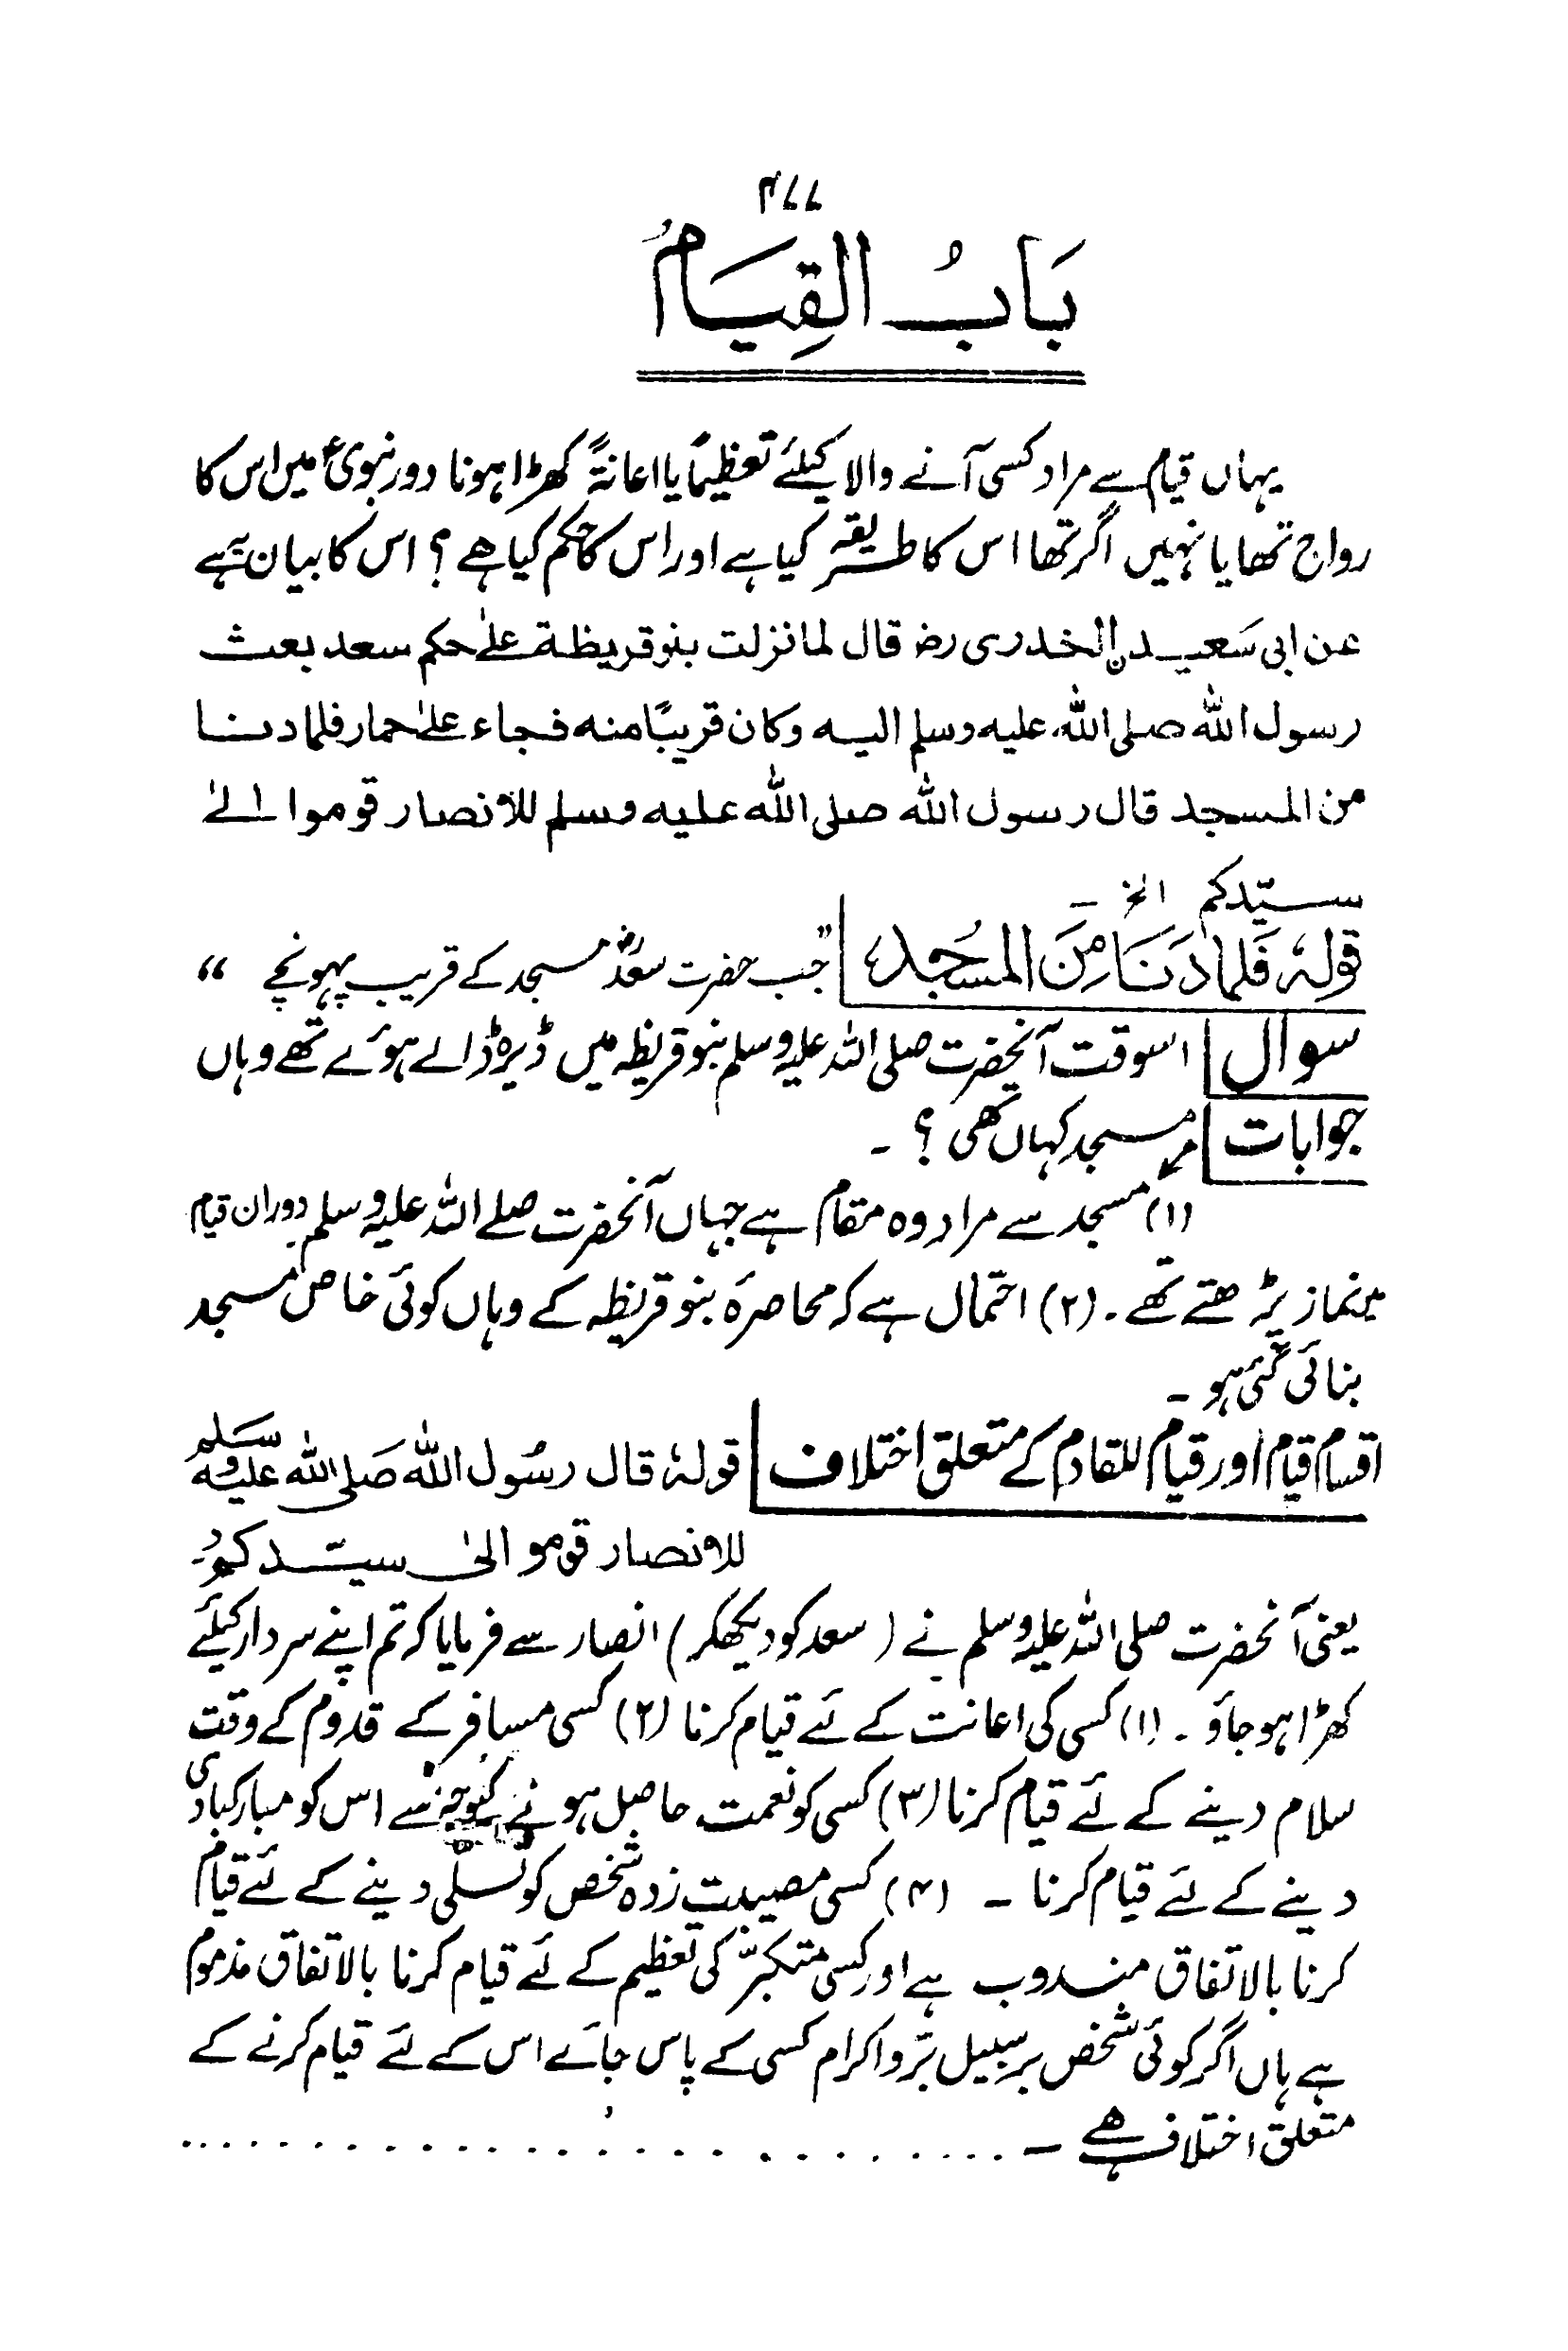 ۴۷۷
بَابُ القِيَامُ
یہاں قیام سے مراد کسی آنے والا کیلئے تعظیمًا یا اعانۃً کھڑا ہونا دور نبویؐ میں اس کا
رواج تھا یا نہیں اگر تھا اس کا طریقہ کیا ہے اور اس کا حکم کیا ہے ؟ اس کا بیان ہے
عن ابی سَعید ن الخدری رضـ قال لما نزلت بنو قریظة علیٰ حکم سعد بعث
رسول الله صلی الله علیه وسلم الیه وکان قریبًا منه فجاء علیٰ حمار فلما دنا
من المسجد قال رسول الله صلی الله علیه وسلم للانصار قوموا الیٰ
سیّدکم الخ ۔
قولہٗ فَلما دَنَا مِنَ المسْجُدِ "جب حضرت سعدؓ مسجد کے قریب پہونچے "
سوال اسوقت آنحضرت صلی اللہ علیہ وسلم بنو قریظہ میں ڈیرہ ڈالے ہوئے تھے وہاں
جوابات مسجد کہاں تھی ؟ ۔
(۱) مسجد سے مراد وہ مقام ہے جہاں آنحضرت صلے اللہ علیہ وسلم دوران قیام
میں نماز پڑھتے تھے ۔ (۲) احتمال ہے کہ محاصرۂ بنو قریظہ کے وہاں کوئی خاص مسجد
بنائی گئی ہو ۔
اقسام قیام اور قیام للقادم کے متعلق اختلاف قولہٗ قال رسُول الله صَلی الله علیه وسَلم
للانصار قومو الیٰ سیّدکمُ ۔
یعنی آنحضرت صلی اللہ علیہ وسلم نے ( سعد کو دیکھکر ) انصار سے فرمایا کہ تم اپنے سردار کیلئے
کھڑا ہو جاؤ ۔ (۱) کسی کی اعانت کے لئے قیام کرنا (۲) کسی مسافر کے قدوم کے وقت
سلام دینے کے لئے قیام کرنا (۳) کسی کو نعمت حاصل ہونے کیوجہ سے اس کو مبارکبادی
دینے کے لئے قیام کرنا ۔ (۴) کسی مصیبت زدہ شخص کو تسلی دینے کے لئے قیام
کرنا بالاتفاق مندوب ہے اور کسی متکبّر کی تعظیم کے لئے قیام کرنا بالاتفاق مذموم
ہے ہاں اگر کوئی شخص بر سبیل بّر و اکرام کسی کے پاس جائے اس کے لئے قیام کرنے کے
متعلق اختلاف ہے ۔ . . . . . . . . . . . . . . . . . . . . . . . .